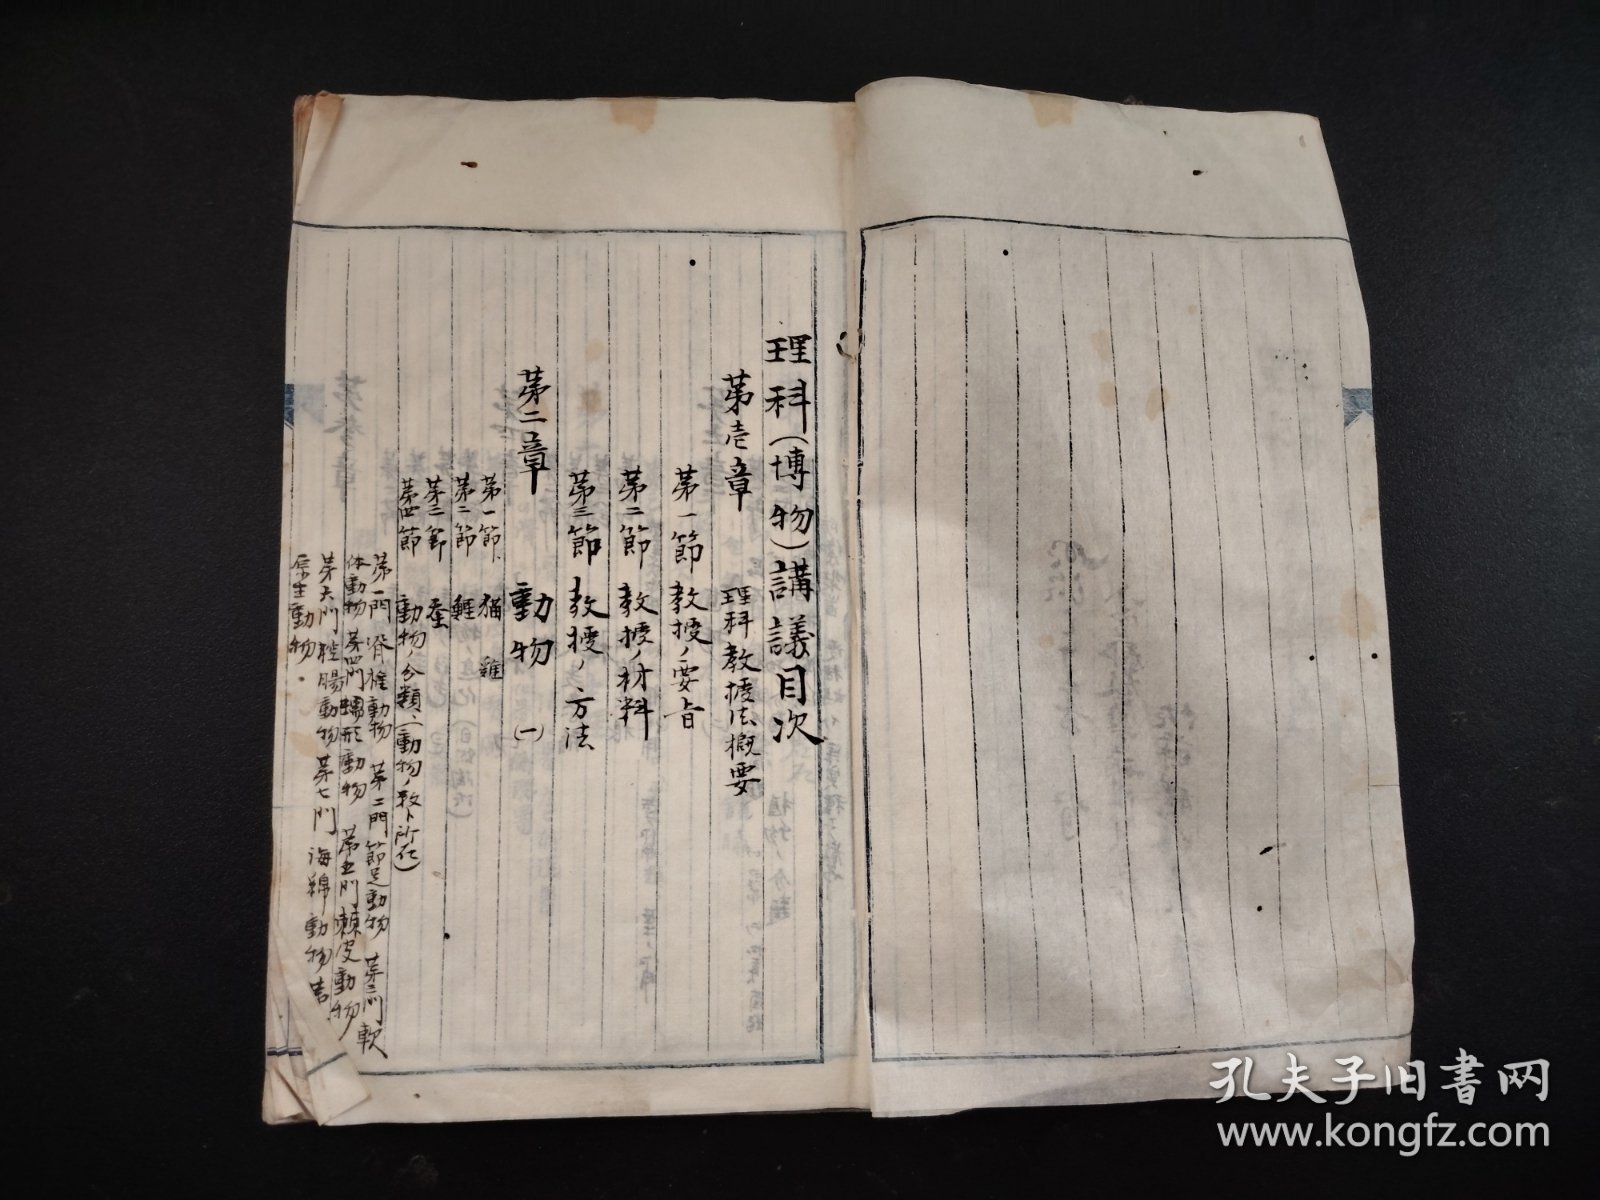 理科(博物)講議目次
第壱章 理科教授法概要
第一節 教授ノ要旨
第二節 教授ノ材料
第三節 教授ノ方法
第二章 動物 (一)
第一節、猫 雞
第二節 鯉
第三節 蚕
第四節 動物ノ分類、(動物ノ数ト所在)
第一門 脊椎動物 第二門、節足動物、第三門、軟
体動物 第四門 蠕形動物 第五門 棘皮動物
第六門、腔腸動物 第七門 海綿動物
原生動物。
孔夫子旧书网
www.kongfz.com